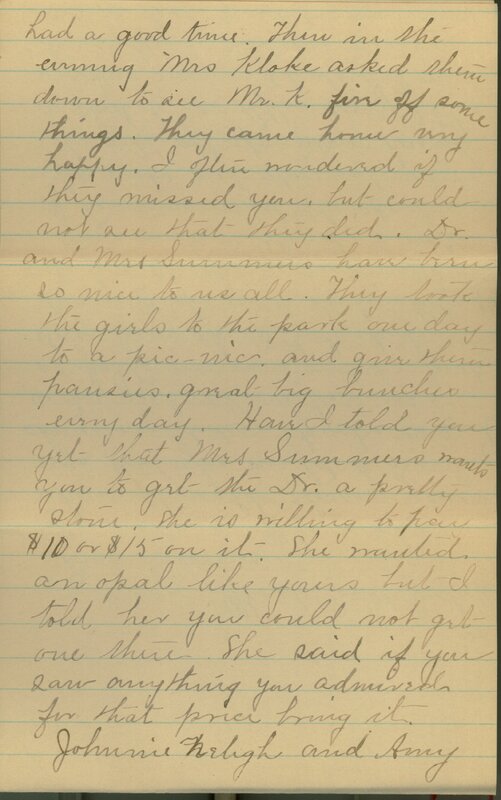 had a good time. Then in the
evening Mrs Kloke asked them
down to see Mr. K. fire off some
things. They came home very
happy. I often wondered if
they missed you, but could
not see that they did. Dr.
and Mrs Summers have been
so nice to us all. They took
the girls to the park one day
to a pic-nic, and give them
pansies, great big bunches
every day. Have I told you
yet that Mrs Summers wants
you to get the Dr. a pretty
stone. She is willing to pay
$10 or $15 on it. She wanted
an opal like yours but I
told her you could not get
one there. She said if you
saw anything you admired
for that price bring it.
Johnnie Neligh and Amy